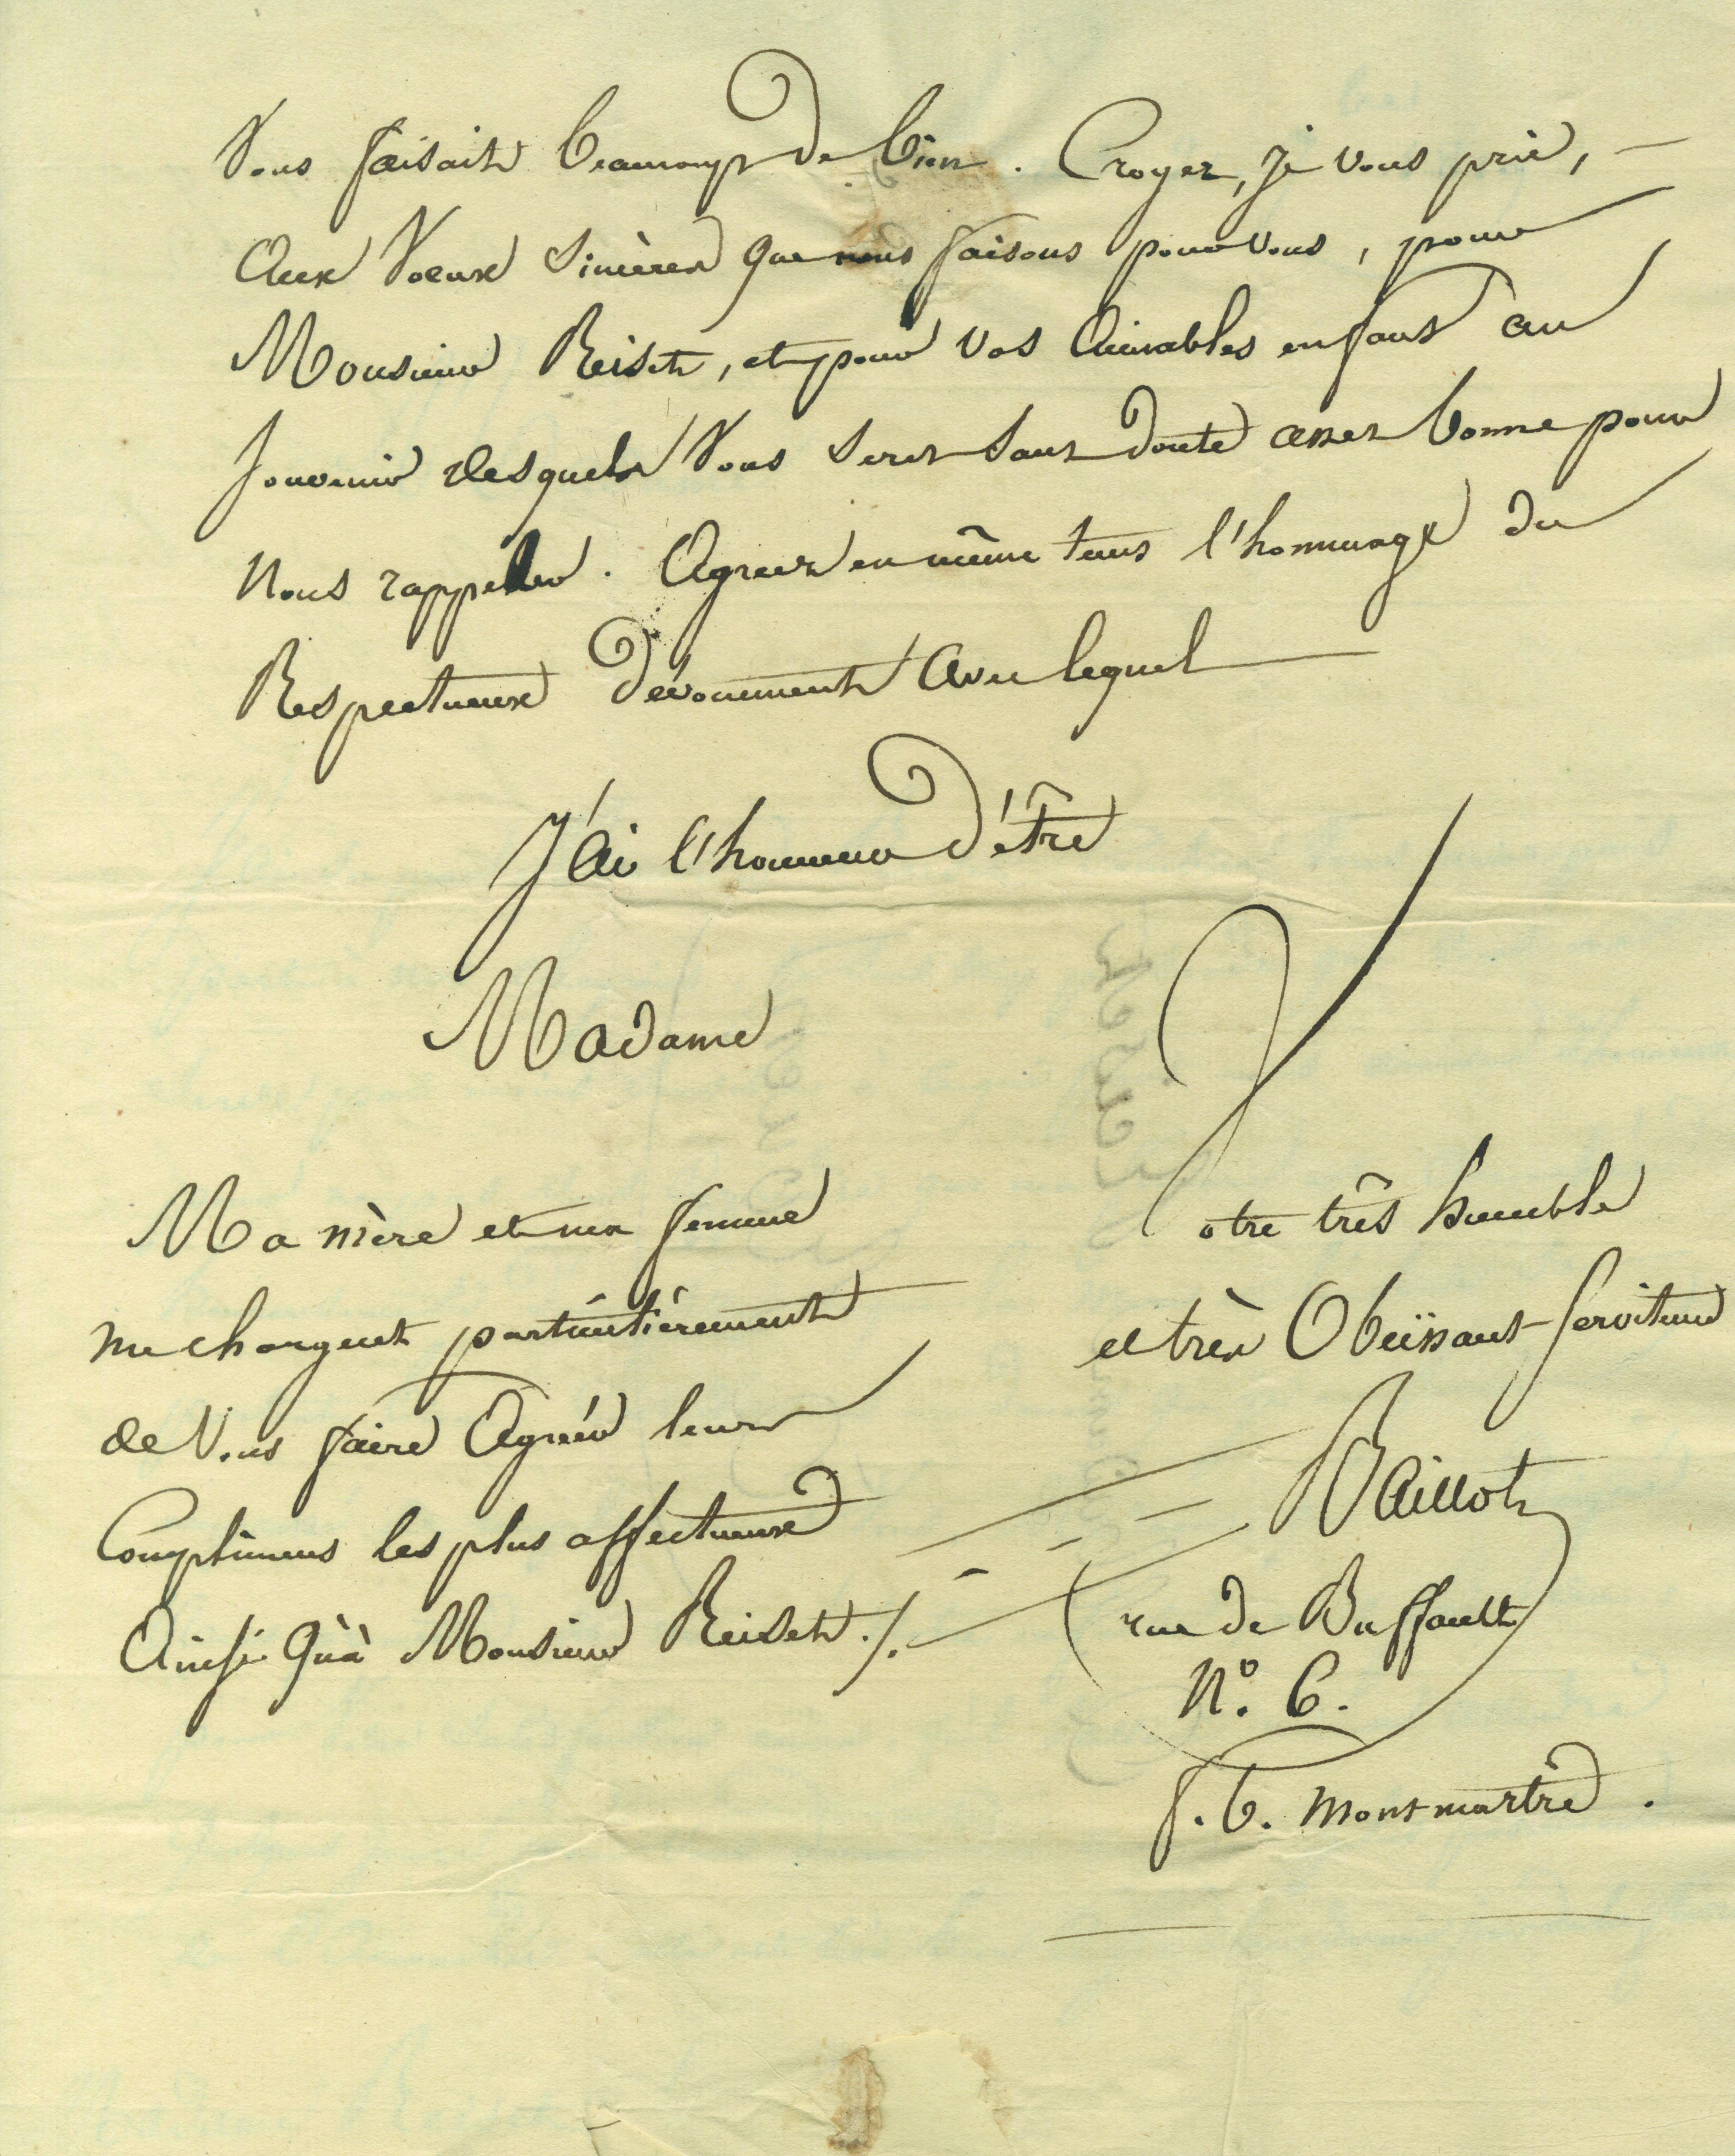 Vous faisait beaucoup de bien. Croyez, je vous prie,
aux voeux sincères que nous faisons pour vous, pour
Monsieur Reiset, et pour vos aimables enfans au
souvenir desquels vous serez sans doute assez bonne pour
nous rappeller. Agréez en même tems l'hommage du
Respectueux dévouement avec lequel
J'ai l'honneur d'être
Madame
Votre très humble
et très Obéissant serviteur
Baillot
rue de Buffault
N.º 6.
f. b. montmartre.
Ma mère et ma femme
me chargent particulièrement
de Vous faire Agréer leurs
Complimens les plus affectueux
Ainsi qu'à Monsieur Reiset ./.